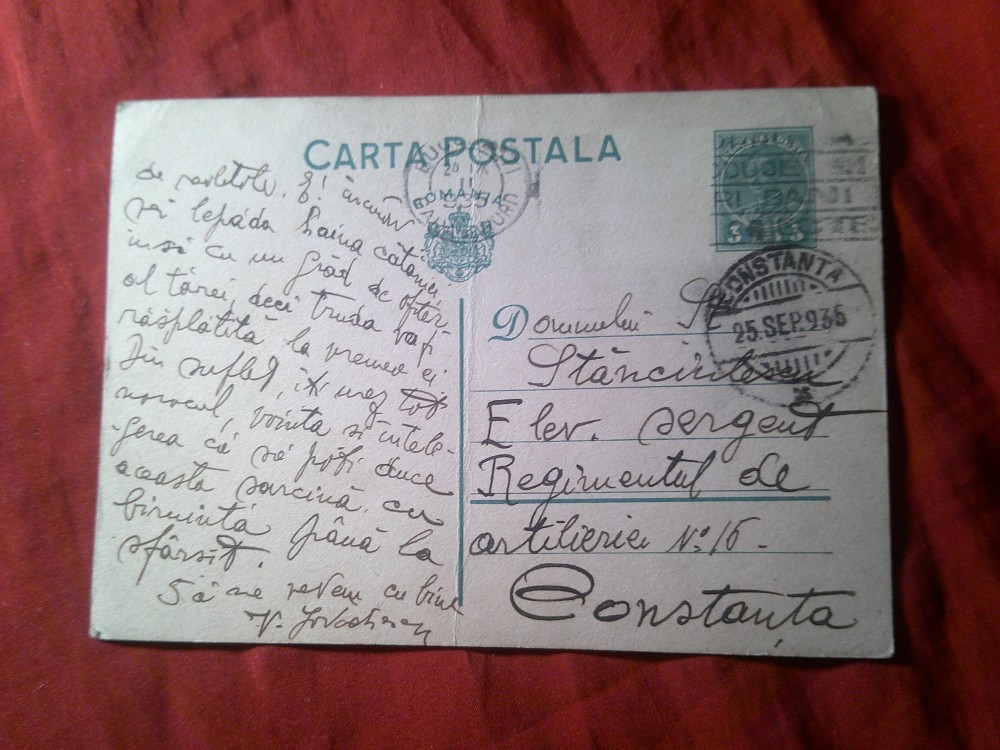 CARTA POSTALA
ROMANIA
CONSTANTA
25.SEP.935
3 3
să lepăda haina cătăniei
însă cu un grad de
al țărei, deci truda va fi
răsplătită la vremea ei
Din suflet, îți urez tot
norocul, voința și întele-
gerea că să poți duce
aceasta sarcină cu
biruință până la
sfârșit.
Să ne vedem cu bine
V.
Domnului St
Stănciulescu
Elev. sergent
Regimentul de
artilierie No. 15 -
Constanța